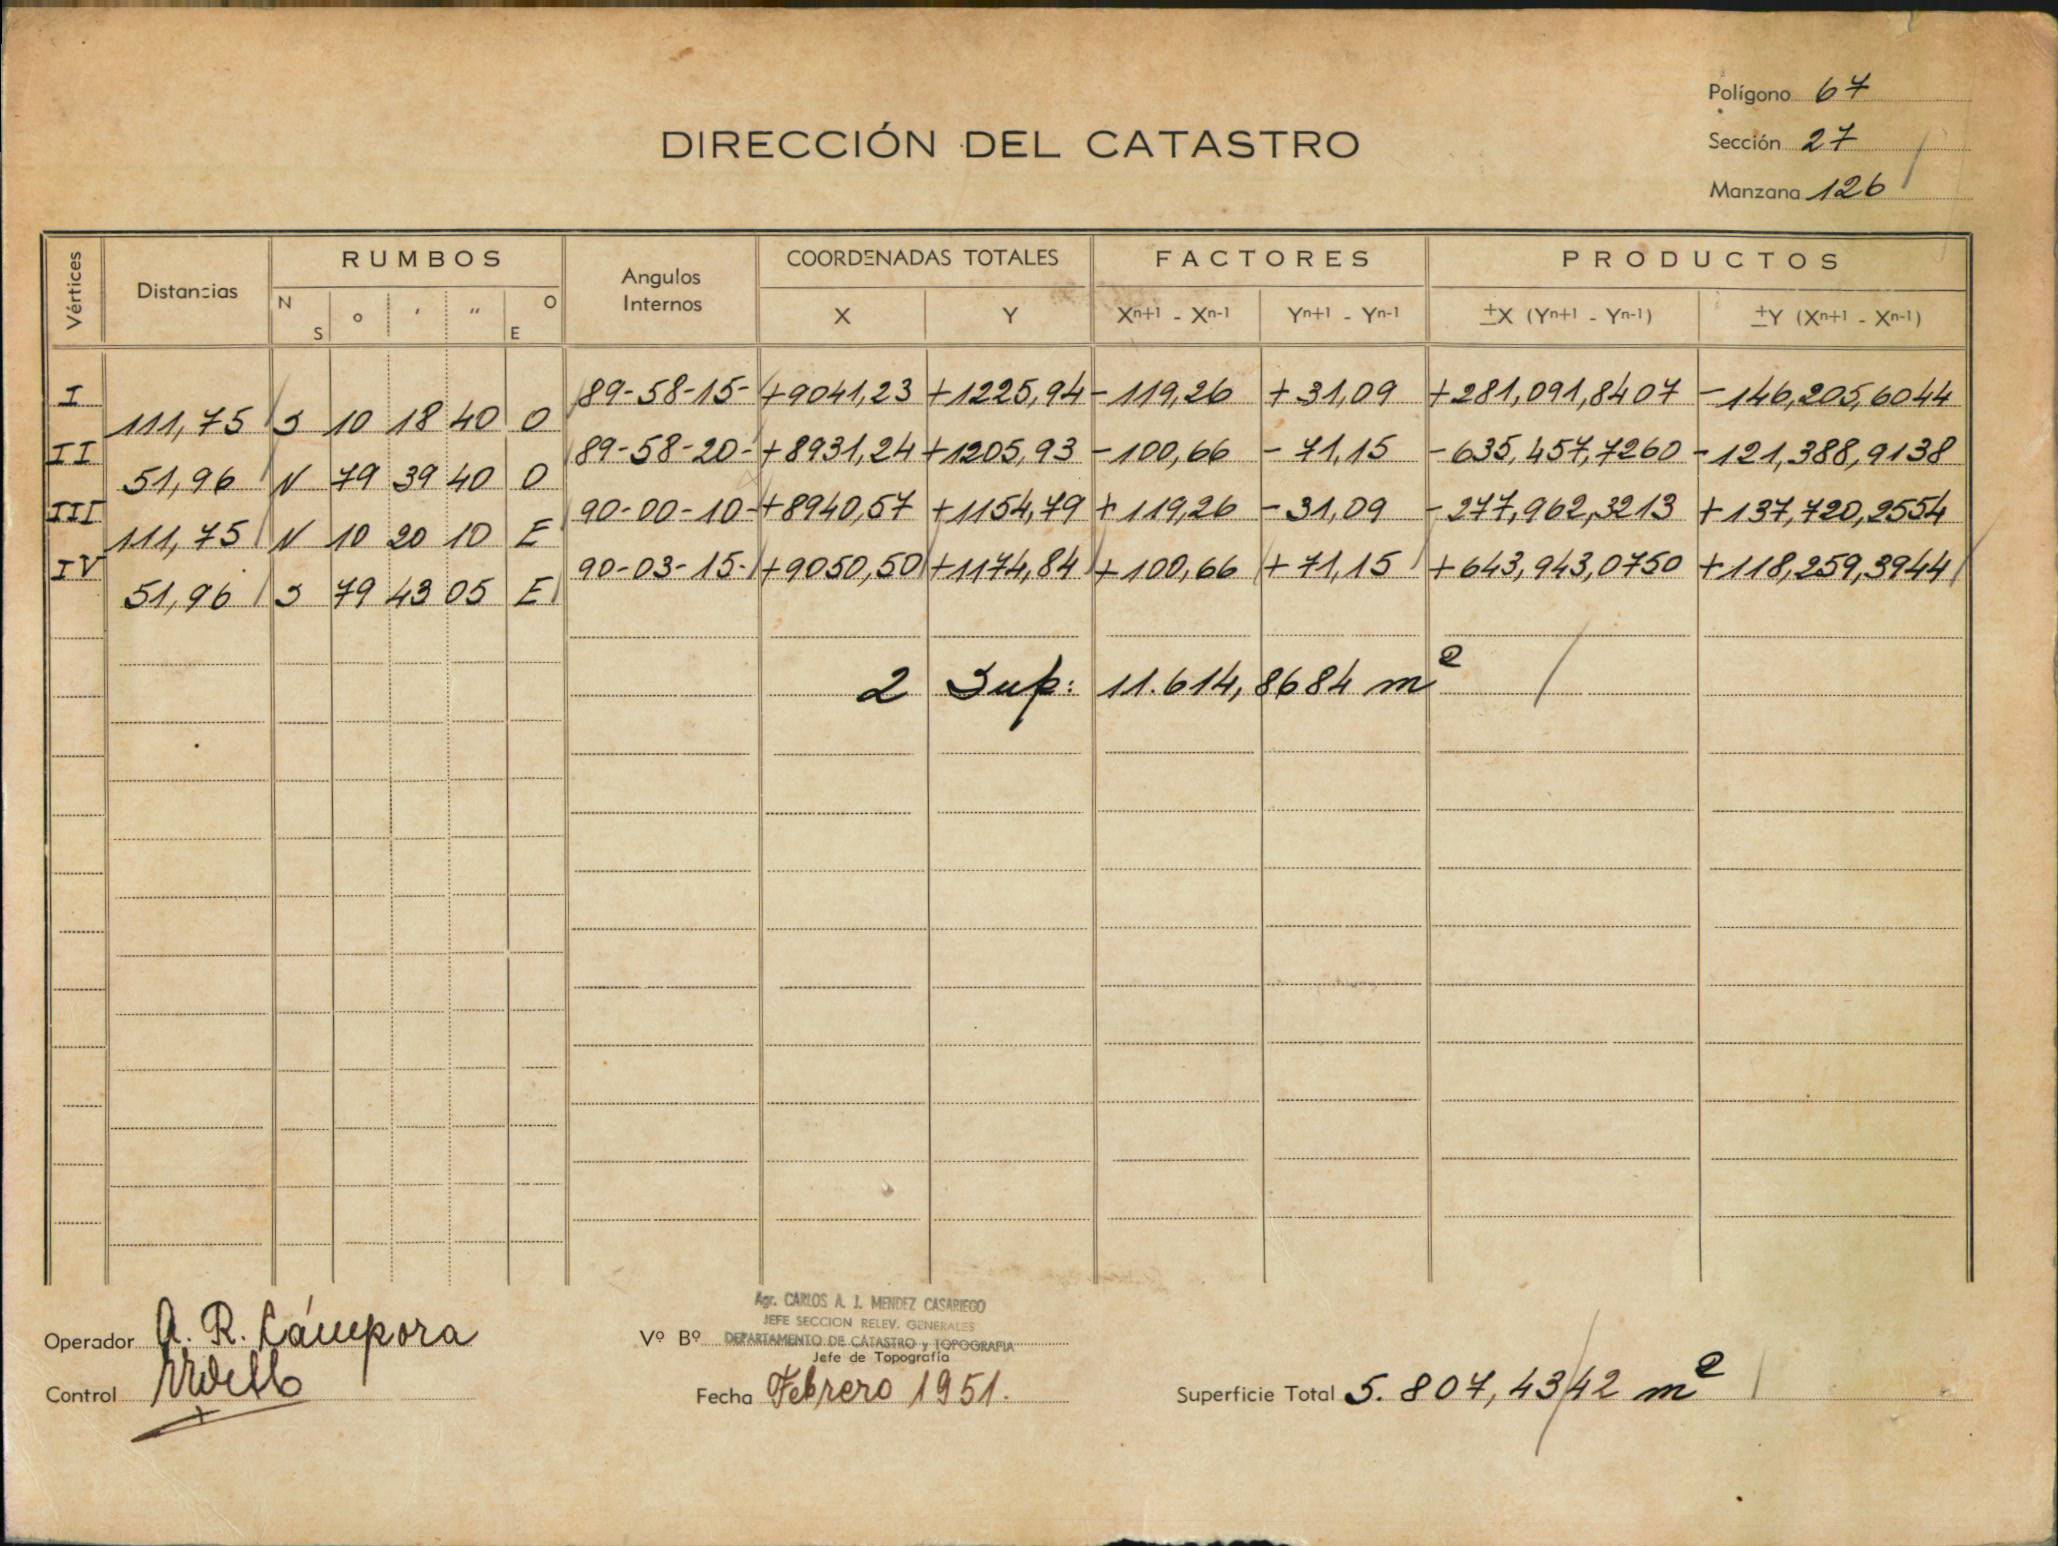 Polígono 67
DIRECCIÓN DEL CATASTRO
Sección 27
Manzana 126
Vértices
Distancias
RUMBOS
N S ° ' " O E
Angulos Internos
COORDENADAS TOTALES
X Y
FACTORES
Xⁿ⁺¹ - Xⁿ⁻¹ Yⁿ⁺¹ - Yⁿ⁻¹
PRODUCTOS
±X (Yⁿ⁺¹ - Yⁿ⁻¹) ±Y (Xⁿ⁺¹ - Xⁿ⁻¹)
I 89-58-15- +9041,23 +1225,94 -119,26 +31,09 +281,091,8407 -146,205,6044
111,75 S 10 18 40 O
II 89-58-20- +8931,24 +1205,93 -100,66 -71,15 -635,457,7260 -121,388,9138
51,96 N 79 39 40 O
III 90-00-10- +8940,57 +1154,79 +119,26 -31,09 -277,962,3213 +137,720,2554
111,75 N 10 20 10 E
IV 90-03-15- +9050,50 +1174,84 +100,66 +71,15 +643,943,0750 +118,259,3944
51,96 S 79 43 05 E
2 Sup: 11.614,8684 m²
Operador A. R. Cámpora
Control
Agr. CARLOS A. J. MENDEZ CASARIEGO
JEFE SECCION RELEV. GENERALES
Vº Bº DEPARTAMENTO DE CATASTRO y TOPOGRAFIA
Jefe de Topografía
Fecha Febrero 1951.
Superficie Total 5.807,4342 m²